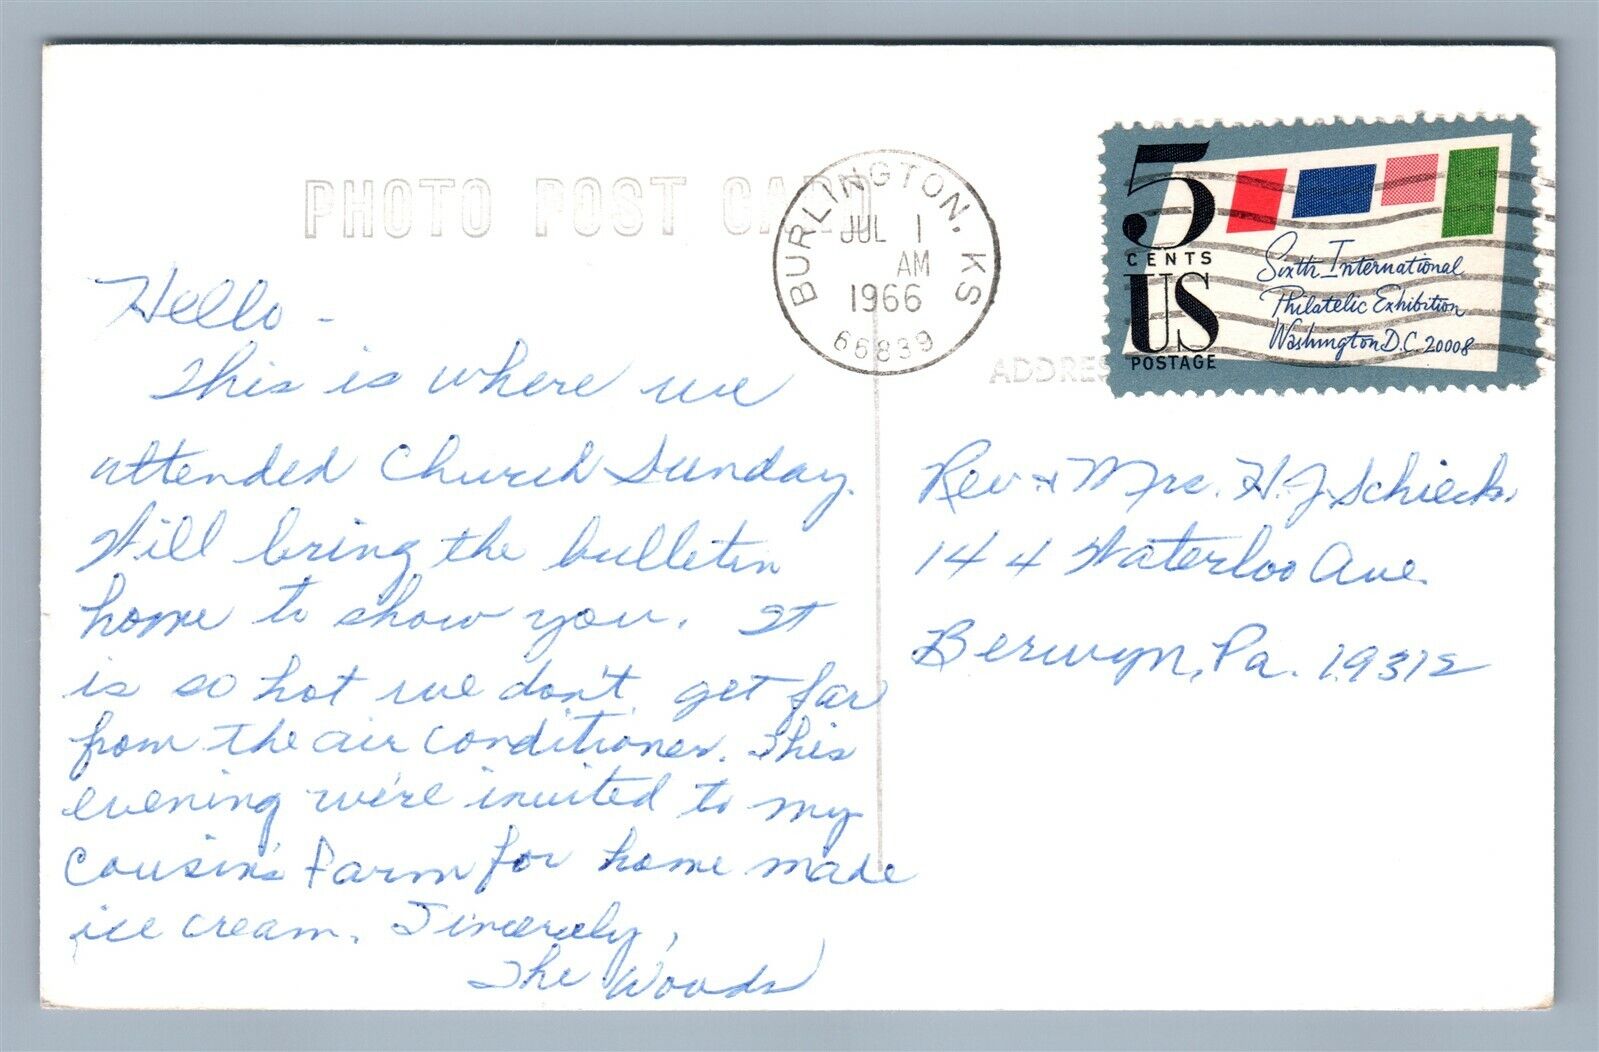 PHOTO POST CARD
BURLINGTON, KS
JUL 1
AM
1966
66839
5
CENTS
US
POSTAGE
Sixth International
Philatelic Exhibition
Washington D.C. 20008
ADDRES
Hello -
This is where we
attended Church Sunday.
Will bring the bulletin
home to show you. It
is so hot we don't get far
from the air conditioner. This
evening we're invited to my
Cousin's Farm for home made
ice cream. Sincerely,
The Woods
Rev & Mrs. H. J. Schieck
144 Waterloo Ave.
Berwyn, Pa. 19312